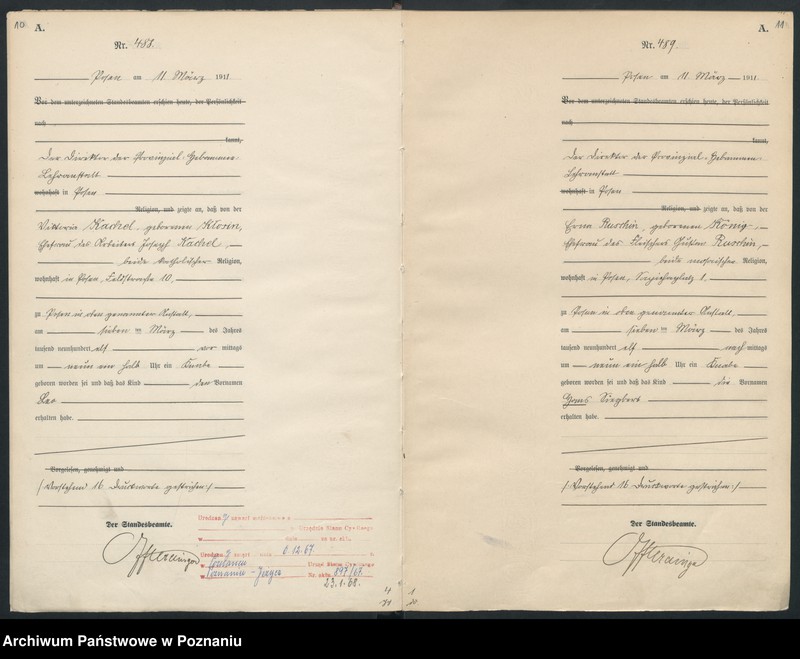 10
A.
Nr. 488.
Posen am 11. März 1911
Vor dem unterzeichneten Standesbeamten erschien heute, der Persönlichkeit
nach
kannt,
Der Direktor der Provinzial-Hebammen-
Lehranstalt
wohnhaft in Posen
Religion, und zeigte an, daß von der
Viktoria Kachel, geborenen
Ehefrau des Arbeiters Joseph Kachel,
beide katholischer Religion,
wohnhaft in Posen, Feldstrasse 10,
zu Posen in oben genannter Anstalt,
am sieben ten März des Jahres
tausend neunhundert elf vor mittags
um neun ein halb Uhr ein Knabe
geboren worden sei und daß das Kind den Vornamen
Leo
erhalten habe.
Vorgelesen, genehmigt und
(Vorstehend 16 Druckworte gestrichen.)
Der Standesbeamte.
Urodzon
Urzędzie Stanu Cywilnego
w
Urodzon zmarł dnia 6.12.67.
w Poznaniu Urząd Stanu Cywilnego
Poznaniu - Jeżyce Nr. aktu 897/67.
23.1.68.
11
A.
Nr. 489.
Posen am 11. März 1911
Vor dem unterzeichneten Standesbeamten erschien heute, der Persönlichkeit
nach
kannt,
Der Direktor der Provinzial-Hebammen-
Lehranstalt
wohnhaft in Posen
Religion, und zeigte an, daß von der
Erna Ruschin, geborenen König,
Ehefrau des Fleischers Gustav Ruschin,
beide mosaischer Religion,
wohnhaft in Posen, Sapiehaplatz 1,
zu Posen in oben genannter Anstalt,
am sieben ten März des Jahres
tausend neunhundert elf nach mittags
um neun ein halb Uhr ein Knabe
geboren worden sei und daß das Kind die Vornamen
Hans Siegbert
erhalten habe.
Vorgelesen, genehmigt und
(Vorstehend 16 Druckworte gestrichen.)
Der Standesbeamte.
Archiwum Państwowe w Poznaniu